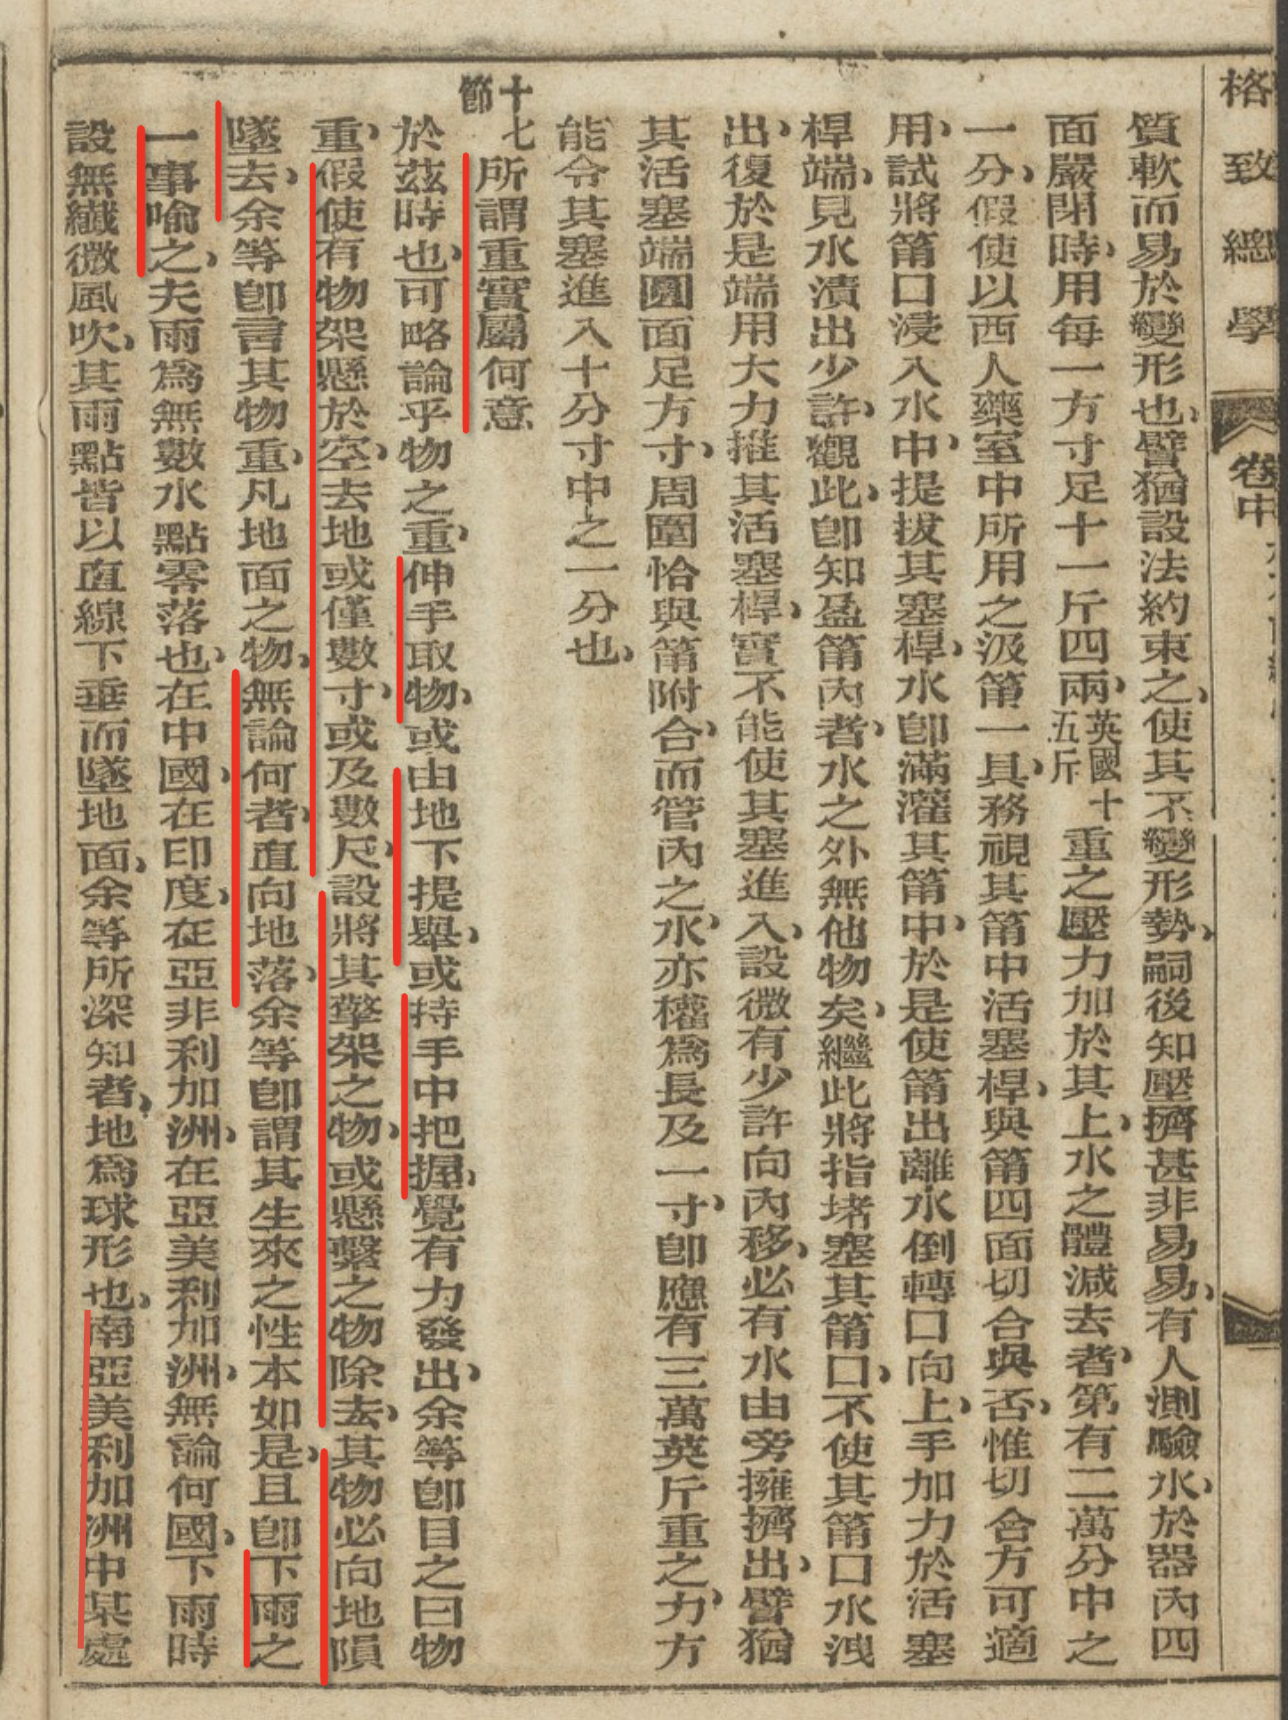 格致總學
卷中
質軟而易於變形也譬猶設法約束之使其不變形勢嗣後知壓擠甚非易易有人測驗水於器內四
面嚴閉時用每一方寸足十一斤四兩英國十五斤重之壓力加於其上水之體減去者第有二萬分中之
一分假使以西人藥室中所用之汲筩一具務視其筩中活塞桿與筩四面切合與否惟切合方可適
用試將筩口浸入水中提拔其塞桿水卽滿灌其筩中於是使筩出離水倒轉口向上手加力於活塞
桿端見水漬出少許觀此卽知盈筩內者水之外無他物矣繼此將指堵塞其筩口不使其筩口水洩
出復於是端用大力推其活塞桿實不能使其塞進入設微有少許向內移必有水由旁擁擠出譬猶
其活塞端圓面足方寸周圍恰與筩附合而管內之水亦權爲長及一寸卽應有三萬英斤重之力方
能令其塞進入十分寸中之一分也
十七節 所謂重實屬何意
於茲時也可略論乎物之重伸手取物或由地下提舉或持手中把握覺有力發出余等卽目之曰物
重假使有物架懸於空去地或僅數寸或及數尺設將其擎架之物或懸繫之物除去其物必向地隕
墜去余等卽言其物重凡地面之物無論何者直向地落余等卽謂其生來之性本如是且卽下雨之
一事喻之夫雨爲無數水點零落也在中國在印度在亞非利加洲在亞美利加洲無論何國下雨時
設無纖微風吹其雨點皆以直線下垂而墜地面余等所深知者地爲球形也南亞美利加洲中某處